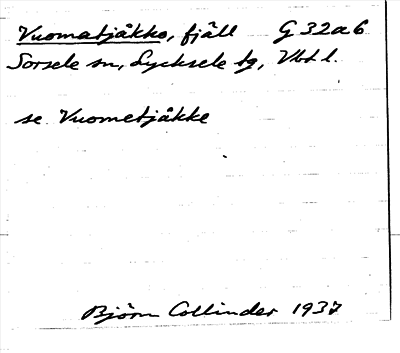 Vuomatjåkko, fjäll G 32a6
Sorsele sn, Lycksele tg, Vbtl.
se Vuometjåkke
Björn Collinder 1937